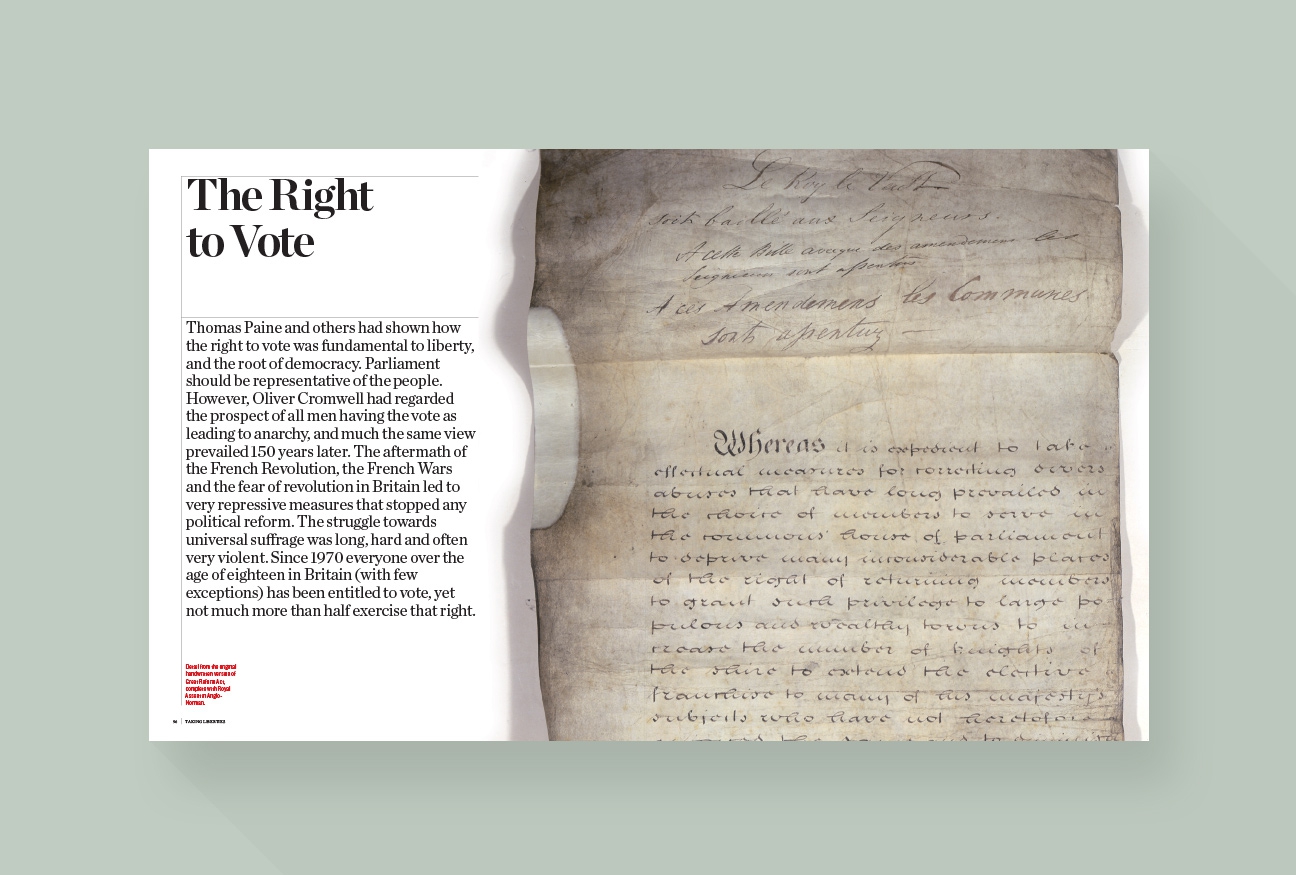 The Right
to Vote
Thomas Paine and others had shown how
the right to vote was fundamental to liberty,
and the root of democracy. Parliament
should be representative of the people.
However, Oliver Cromwell had regarded
the prospect of all men having the vote as
leading to anarchy, and much the same view
prevailed 150 years later. The aftermath of
the French Revolution, the French Wars
and the fear of revolution in Britain led to
very repressive measures that stopped any
political reform. The struggle towards
universal suffrage was long, hard and often
very violent. Since 1970 everyone over the
age of eighteen in Britain (with few
exceptions) has been entitled to vote, yet
not much more than half exercise that right.
Detail from the original
handwritten version of
Great Reform Act,
complete with Royal
Assent in Anglo-
Norman.
96 TAKING LIBERTIES
Le Roy le Veult
soit baillé aux Seigneurs.
A cette Bille avecque des amendemens les
Seigneurs sont assentus
A ces Amendemens les Communes
sont assentuz
Whereas it is expedient to take
effectual measures for correcting divers
abuses that have long prevailed in
the choice of members to serve in
the commons house of parliament
to deprive many inconsiderable places
of the right of returning members
to grant such privilege to large po-
pulous and wealthy towns to in-
crease the number of knights of
the shire to extend the elective
franchise to many of his majesty's
subjects who have not heretofore
the same and to